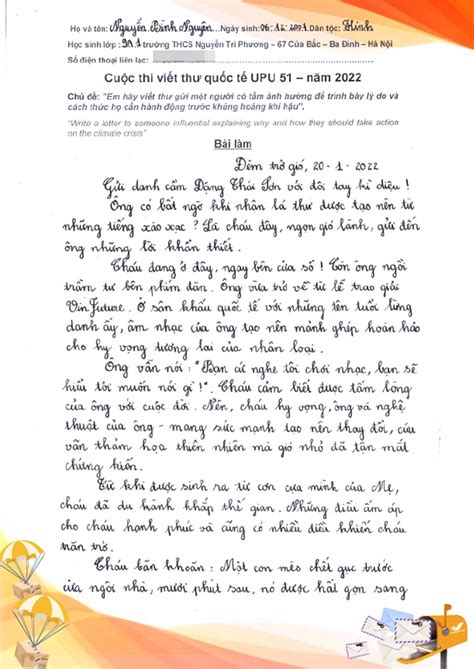 Họ và tên: Nguyễn Bình Nguyên ...Ngày sinh: 06.12.2007. Dân tộc: Kinh
Học sinh lớp: 9A1 trường THCS Nguyễn Tri Phương – 67 Cửa Bắc – Ba Đình – Hà Nội
Số điện thoại liên lạc:
Cuộc thi viết thư quốc tế UPU 51 – năm 2022
Chủ đề: "Em hãy viết thư gửi một người có tầm ảnh hưởng để trình bày lý do và
cách thức họ cần hành động trước khủng hoảng khí hậu".
"Write a letter to someone influential explaining why and how they should take action
on the climate crisis"
Bài làm
Đêm trở gió, 20-1-2022
Gửi danh cầm Đặng Thái Sơn với đôi tay kì diệu!
Ông có bất ngờ khi nhận lá thư được tạo nên từ
những tiếng xào xạc? Là cháu đây, ngọn gió lành, gửi đến
ông những lời khẩn thiết.
Cháu đang ở đây, ngay bên cửa sổ! Còn ông ngồi
trầm tư bên phím đàn. Ông vừa trở về từ lễ trao giải
VinFuture. Ở sân khấu quốc tế với những tên tuổi lừng
danh ấy, âm nhạc của ông tạo nên mảnh ghép hoàn hảo
cho hy vọng tương lai của nhân loại.
Ông vẫn nói: "Bạn cứ nghe tôi chơi nhạc, bạn sẽ
hiểu tôi muốn nói gì!". Cháu cảm biết được tấm lòng
của ông với cuộc đời. Nên, cháu hy vọng, ông và nghệ
thuật của ông - mang sức mạnh tạo nên thay đổi, cứu
vãn thảm họa thiên nhiên mà gió nhỏ đã tận mắt
chứng kiến.
Từ khi được sinh ra từ cơn cựa mình của Mẹ,
cháu đã du hành khắp thế gian. Những điều ấm áp
cho cháu hạnh phúc và cũng có nhiều điều khiến cháu
trăn trở.
Cháu băn khoăn: Một con mèo chết gục trước
cửa ngôi nhà, mười phút sau, nó được hất gọn sang